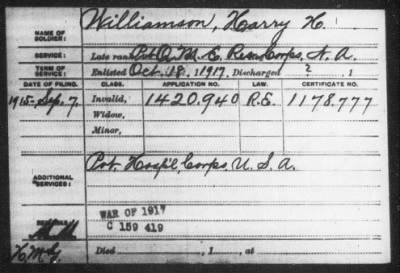 NAME OF SOLDIER: Williamson, Harry H.
SERVICE: Late rank Pvt Q. M. C. Corps, N. A.
TERM OF SERVICE: Enlisted Oct. 18, 1917, Discharged ?, 1
DATE OF FILING. CLASS. APPLICATION NO. LAW. CERTIFICATE NO.
1915-Sep. 7. Invalid, 1420,940 R.S. 1178,777
Widow,
Minor,
ADDITIONAL SERVICES: Pvt. Hosp'l, Corps, U. S. A.
WAR OF 1917
C 159 419
Died , 1 , at